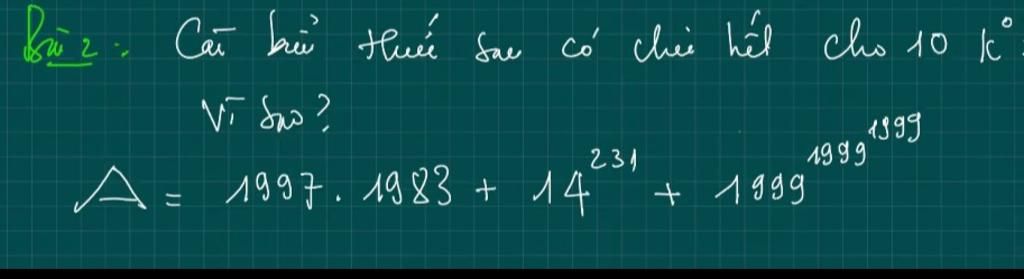 Bài 2: Các biểu thức sau có chia hết cho 10 k°.
Vì sao?
A = 1997. 1983 + 14^231 + 1999^1999^1999